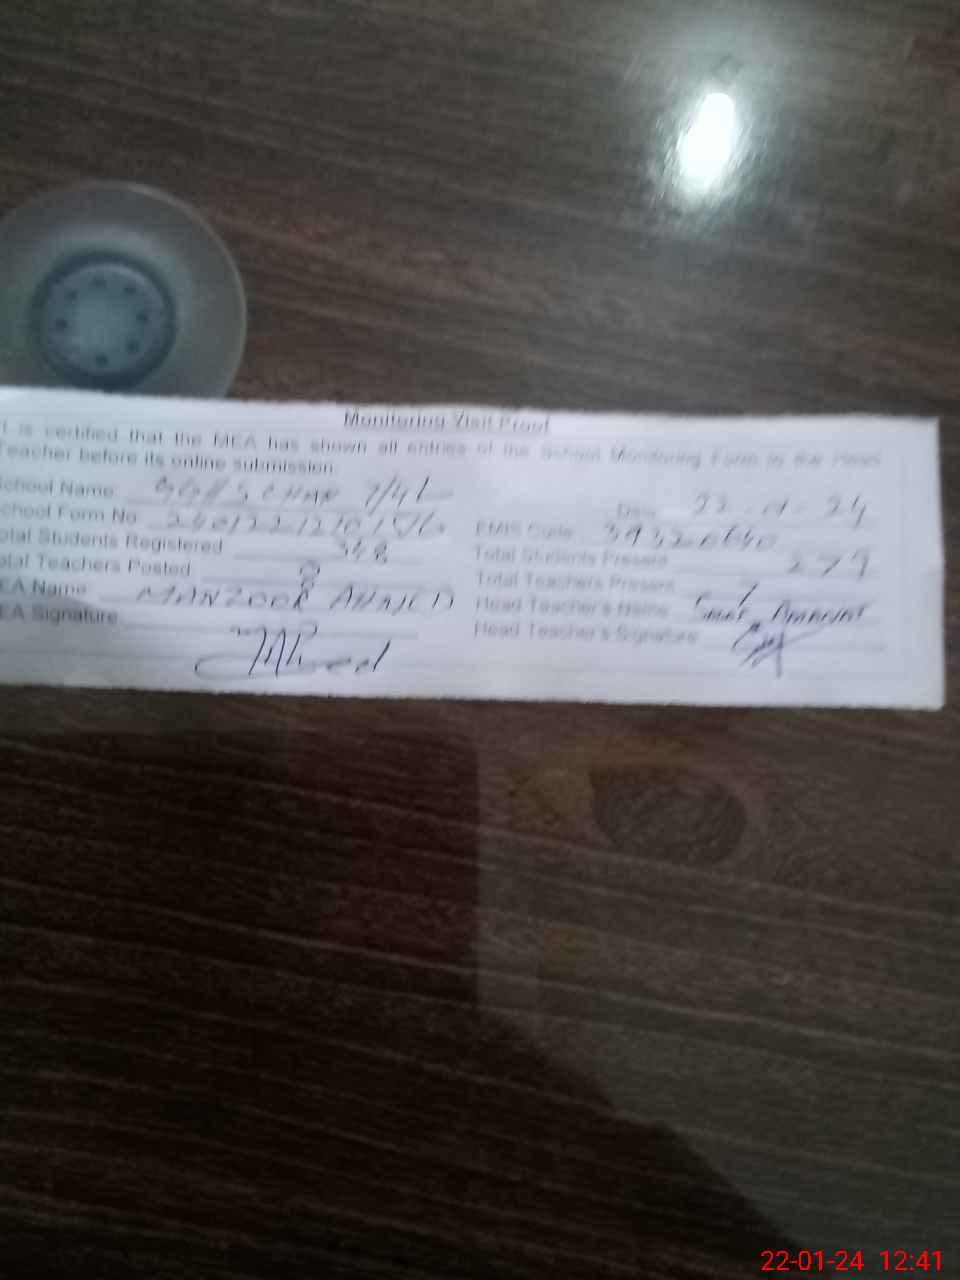 Monitoring Visit Proof
t is certified that the MEA has shown all entries of the School Monitoring Form to the Head
Teacher before its online submission.
chool Name GGHS CHAK 7/4L Date 22-01-24
chool Form No EMIS Code 39320640
otal Students Registered 348 Total Students Present 279
otal Teachers Posted 8 Total Teachers Present 7
EA Name MANZOOR AHMED Head Teacher's Name AMANAT
EA Signature Head Teacher's Signature
22-01-24 12:41